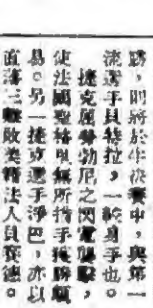 路，則將於半決賽中，與第一
流選手貝特拉，一較身手也。
捷克萬靜勃尼之閃電襲擊，
使法國聖格里無所措手捷勝頗
易。另一捷克選手淨巴，亦以
直落三輕取美籍法人員賽德。